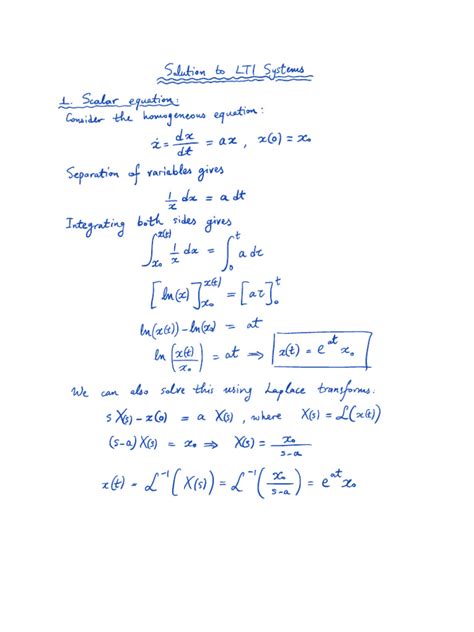 Solution to LTI Systems
1. Scalar equation:
Consider the homogeneous equation:
ẋ = dx/dt = ax , x(0) = x₀
Separation of variables gives
1/x dx = a dt
Integrating both sides gives
∫_{x₀}^{x(t)} 1/x dx = ∫_0^t a dτ
[ln(x)]_{x₀}^{x(t)} = [aτ]_0^t
ln(x(t)) - ln(x₀) = at
ln(x(t)/x₀) = at ⇒ x(t) = e^{at} x₀
We can also solve this using Laplace transforms.
s X(s) - x(0) = a X(s) , where X(s) = ℒ(x(t))
(s-a) X(s) = x₀ ⇒ X(s) = x₀/(s-a)
x(t) = ℒ⁻¹(X(s)) = ℒ⁻¹(x₀/(s-a)) = e^{at} x₀